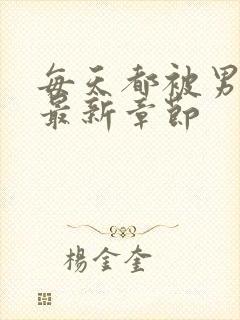 每天都被男
最新章節
楊金奎